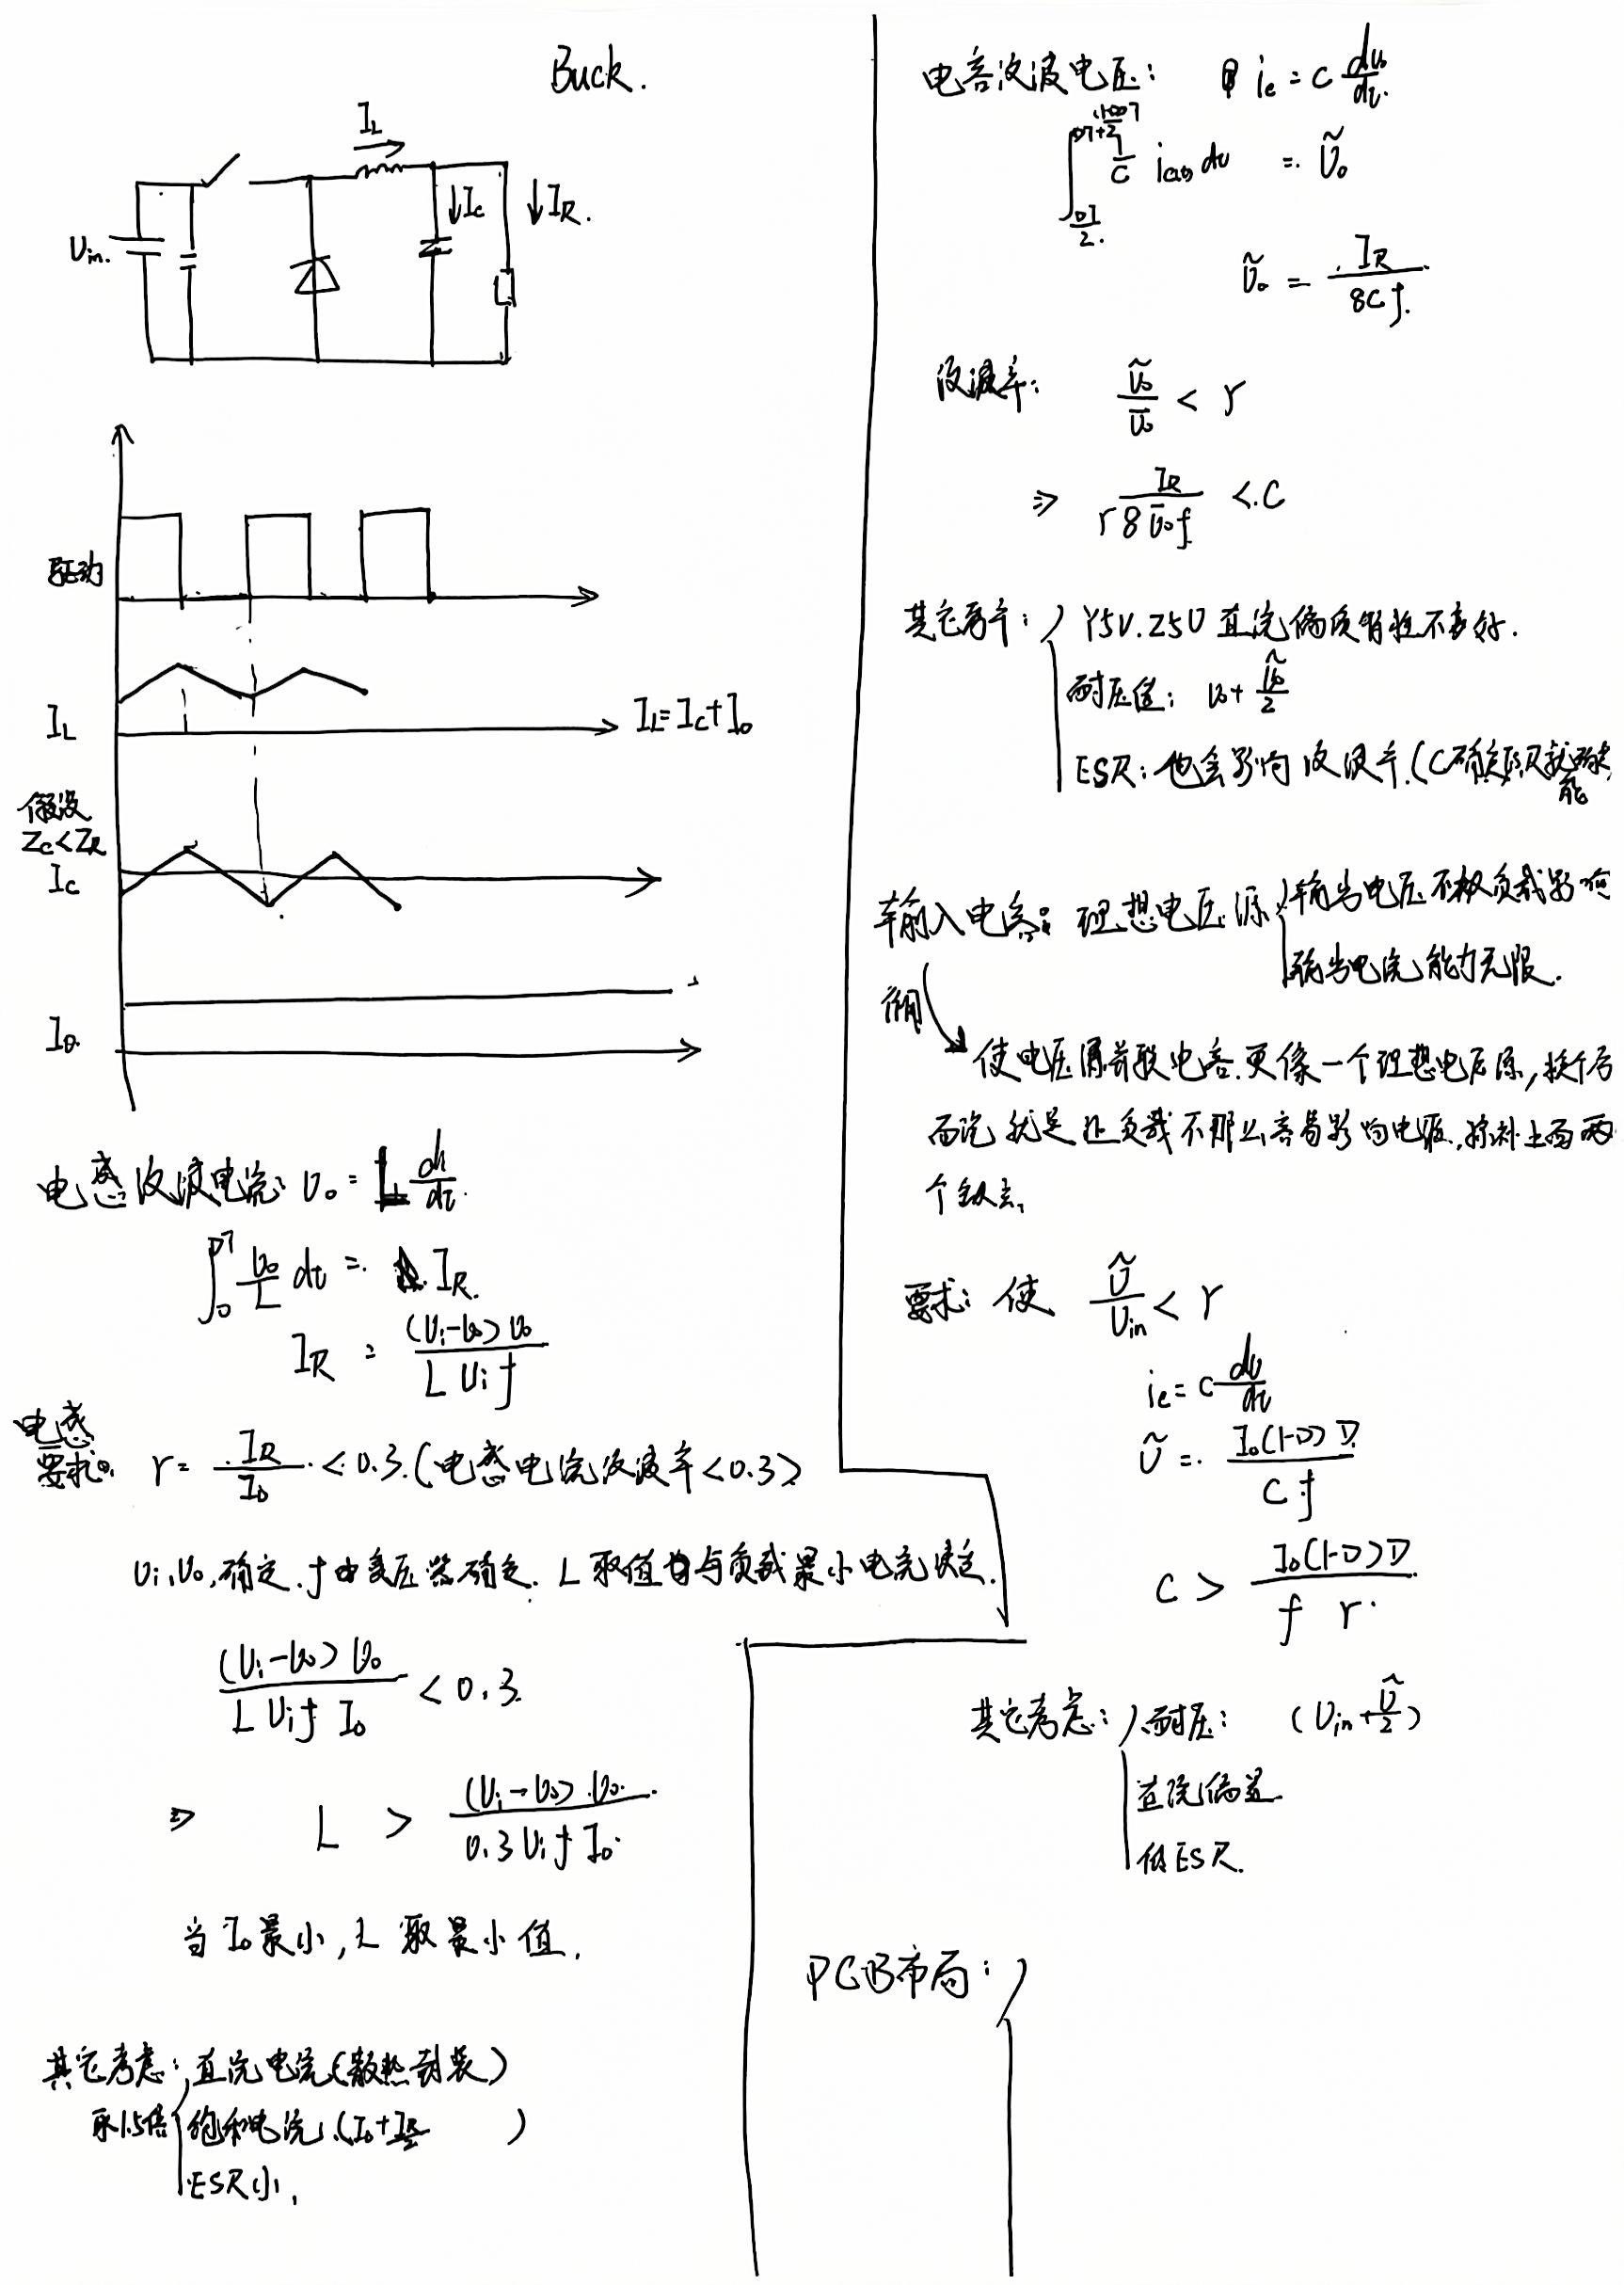 Buck.
I_L
U_in.
↓I_c
↓I_R.
驱动
I_L
I_L=I_c+I_o
假设
Z_c<Z_R
I_c
I_o
电感纹波电流: U_o = L di/dt.
∫_0^{DT} U_o/L dt = I_R.
I_R = (U_i-U_o)U_o / (L U_i f)
电感
要求: r = I_R/I_o < 0.3.(电感电流纹波率<0.3)
U_i,U_o,确定.f由变压器确定. L取值与负载最小电流决定.
(U_i-U_o)U_o / (L U_i f I_o) < 0.3.
⇒ L > (U_i-U_o).U_o. / (0.3U_i f I_o.)
当I_o最小,L取最小值.
其它考虑: 直流电流(散热封装)
取1.5倍 饱和电流.(I_o+I_R/2)
ESR小.
电容纹波电压: i_c = C du_o/dt.
= Ũ_o
Ũ_o = I_R / (8Cf.)
纹波率: Ũ_o/Ū_o < r
⇒ I_R / (r8Ū_o f) <.C
其它考虑: Y5V.Z5U直流偏置特性不太好.
耐压值: U_o+Ũ_o/2
ESR:也会影响纹波率.(C确定ESR就确定
能
输入电容: 理想电压源 输出电压不被负载影响
输出电流能力无限.
作用
使电压源并联电容.更像一个理想电压源,换句话
而说就是让负载不那么容易影响电源.弥补上面两
个缺点.
要求: 使 Ũ/U_in < r
i_c = C du/dt
Ũ = I_o(1-D)D / (C f)
C > I_o(1-D)D / (f r.)
其它考虑: 耐压: (U_in+Ũ/2)
直流偏置
低ESR.
PCB布局: